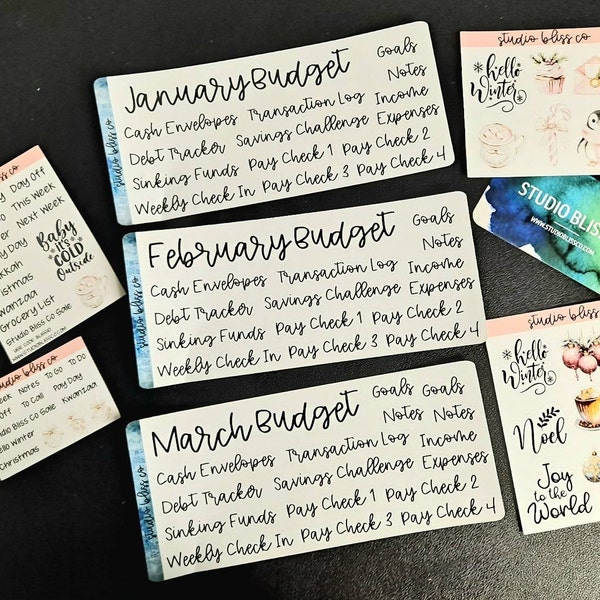 studio bliss co
January Budget
Goals
Notes
Cash Envelopes Transaction Log Income
Debt Tracker Savings Challenge Expenses
Sinking Funds Pay Check 1 Pay Check 2
Weekly Check In Pay Check 3 Pay Check 4
studio bliss co
February Budget
Goals
Notes
Cash Envelopes Transaction Log Income
Debt Tracker Savings Challenge Expenses
Sinking Funds Pay Check 1 Pay Check 2
Weekly Check In Pay Check 3 Pay Check 4
studio bliss co
March Budget
Goals Goals
Notes Notes
Cash Envelopes Transaction Log Income
Debt Tracker Savings Challenge Expenses
Sinking Funds Pay Check 1 Pay Check 2
Weekly Check In Pay Check 3 Pay Check 4
bliss co
Day Off
This Week
Next Week
Day
Grocery List
Studio Bliss Co Sale
WWW.STUDIOBLISSCO.COM
Baby
it's
COLD
Outside
bliss co
Notes To Go To Do
To Call Pay Day
Bliss Co Sale Kwanzaa
Winter
Christmas
studio bliss co
hello
Winter
STUDIO BLISS
WWW.STUDIOBLISSCO.COM
studio bliss co
hello
Winter
Noel
Joy
to the
World